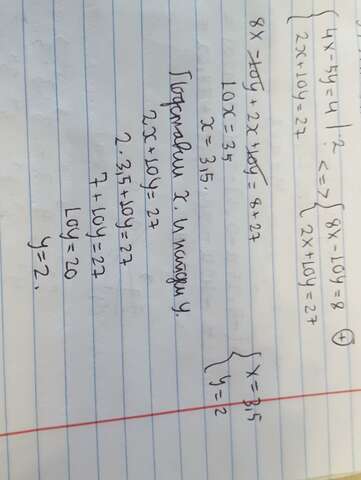 { 4x-5y=4 |·2 <=> { 8x-10y=8 (+)
{ 2x+10y=27 { 2x+10y=27
8x-10y+2x+10y=8+27
10x=35
x=3,5.
Подставим x. и найдем y.
2x+10y=27
2·3,5+10y=27
7+10y=27
10y=20
y=2.
{ x=3,5
{ y=2